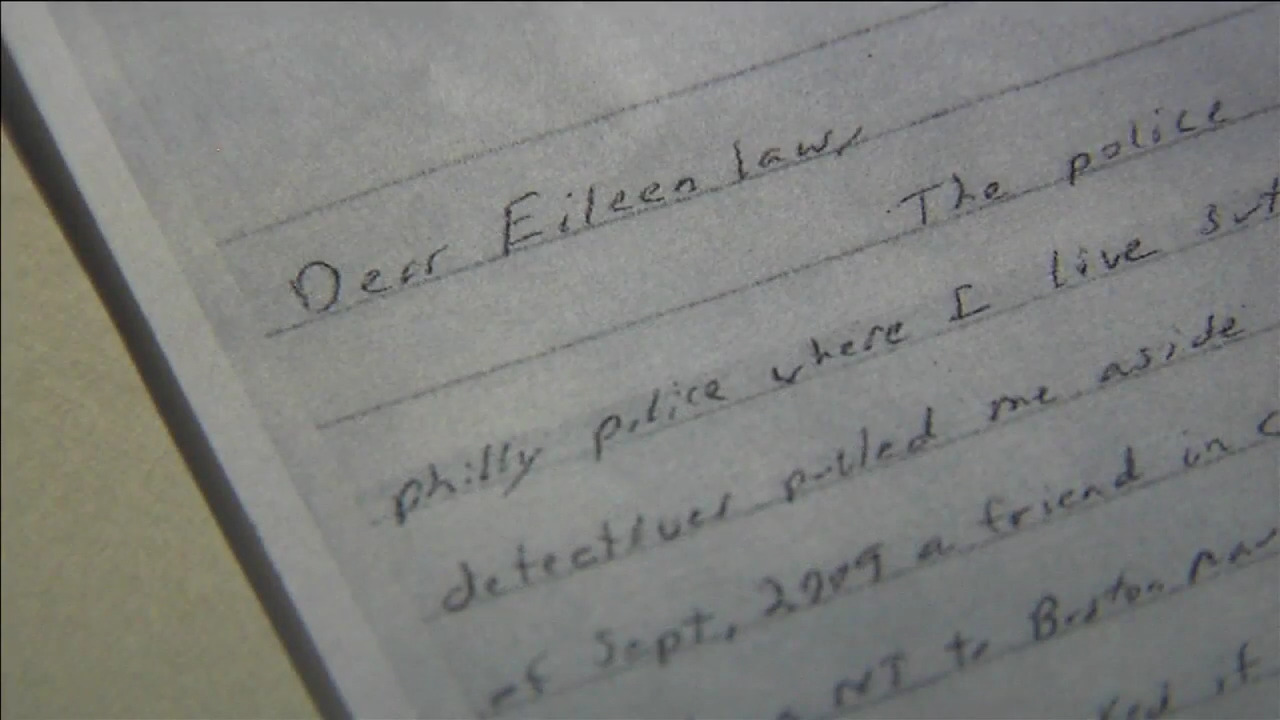 Dear Eileen law,
The police
philly police where I live
detectives pulled me aside
of Sept, 2009 a friend in
NJ to Boston
it